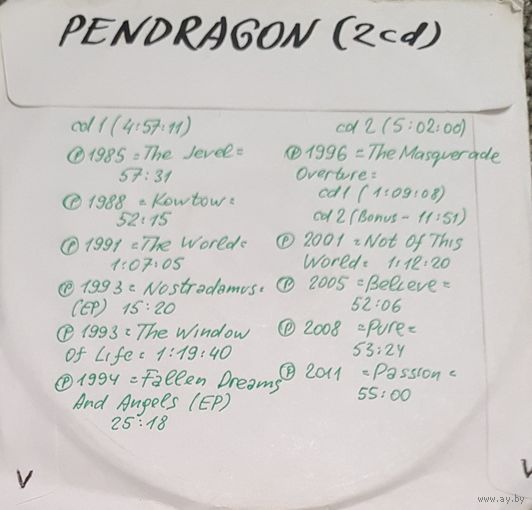 PENDRAGON (2cd)
cd1 (4:57:11)
℗ 1985 = The Jewel =
57:31
℗ 1988 = Kowtow =
52:15
℗ 1991 = The World =
1:07:05
℗ 1993 = Nostradamus =
(EP) 15:20
℗ 1993 = The Window
Of Life = 1:19:40
℗ 1994 = Fallen Dreams
And Angels (EP)
25:18
cd2 (5:02:00)
℗ 1996 = The Masquerade
Overture =
cd1 (1:09:08)
cd2 (Bonus - 11:51)
℗ 2001 = Not Of This
World = 1:12:20
℗ 2005 = Believe =
52:06
℗ 2008 = Pure =
53:24
℗ 2011 = Passion =
55:00
V
V
www.ay.by